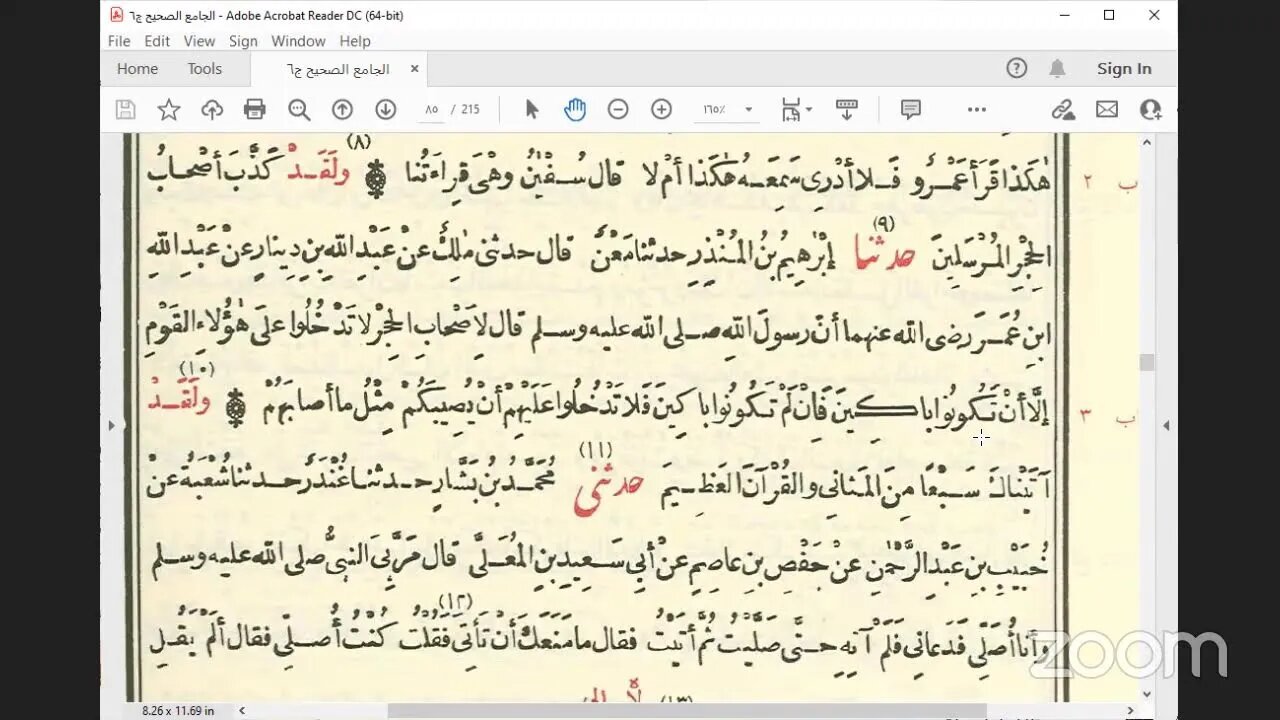 الجامع الصحيح ج٦ - Adobe Acrobat Reader DC (64-bit)
File Edit View Sign Window Help
Home Tools الجامع الصحيح ج٦ × Sign In
٨٥ / 215 ١٦٥٪
(٨)
هٰكَذَا قَرَأَ عَمْرٌو فَلَا أَدْرِى سَمِعَهُ هٰكَذَا أَمْ لَا قَالَ سُفْيٰنُ وَهْىَ قِرَاءَتُنَا وَلَقَدْ كَذَّبَ أَصْحَابُ
ب ٢
(٩)
الْحِجْرِ الْمُرْسَلِينَ حدثنا إِبْرٰهِيمُ بْنُ الْمُنْذِرِ حدثنا مَعْنٌ قال حدثنى مٰلِكٌ عَنْ عَبْدِ اللهِ بْنِ دِينَارٍ عَنْ عَبْدِ اللهِ
ابْنِ عُمَرَ رضى الله عنهما أَنَّ رسولَ اللهِ صلى الله عليه وسلم قال لِأَصْحَابِ الْحِجْرِ لَا تَدْخُلُوا عَلَى هٰؤُلَاءِ الْقَوْمِ
(١٠)
إِلَّا أَنْ تَكُونُوا بَاكِينَ فَإِنْ لَمْ تَكُونُوا بَاكِينَ فَلَا تَدْخُلُوا عَلَيْهِمْ أَنْ يُصِيبَكُمْ مِثْلُ مَا أَصَابَهُمْ وَلَقَدْ
ب ٣
(١١)
آتَيْنَاكَ سَبْعًا مِنَ الْمَثَانِى وَالْقُرْآنَ الْعَظِيمَ حدثنى مُحَمَّدُ بْنُ بَشَّارٍ حدثنا غُنْدَرٌ حدثنا شُعْبَةُ عَنْ
خُبَيْبِ بْنِ عَبْدِ الرَّحْمٰنِ عَنْ حَفْصِ بْنِ عَاصِمٍ عَنْ أَبِى سَعِيدِ بْنِ الْمُعَلَّى قال مَرَّ بِىَ النبىُّ صلى الله عليه وسلم
(١٢)
وَأَنَا أُصَلِّى فَدَعَانِى فَلَمْ آتِهِ حَتَّى صَلَّيْتُ ثُمَّ أَتَيْتُ فقال مَا مَنَعَكَ أَنْ تَأْتِىَ فَقُلْتُ كُنْتُ أُصَلِّى فقال أَلَمْ يَقُلِ
(١٣)
zoom
8.26 x 11.69 in